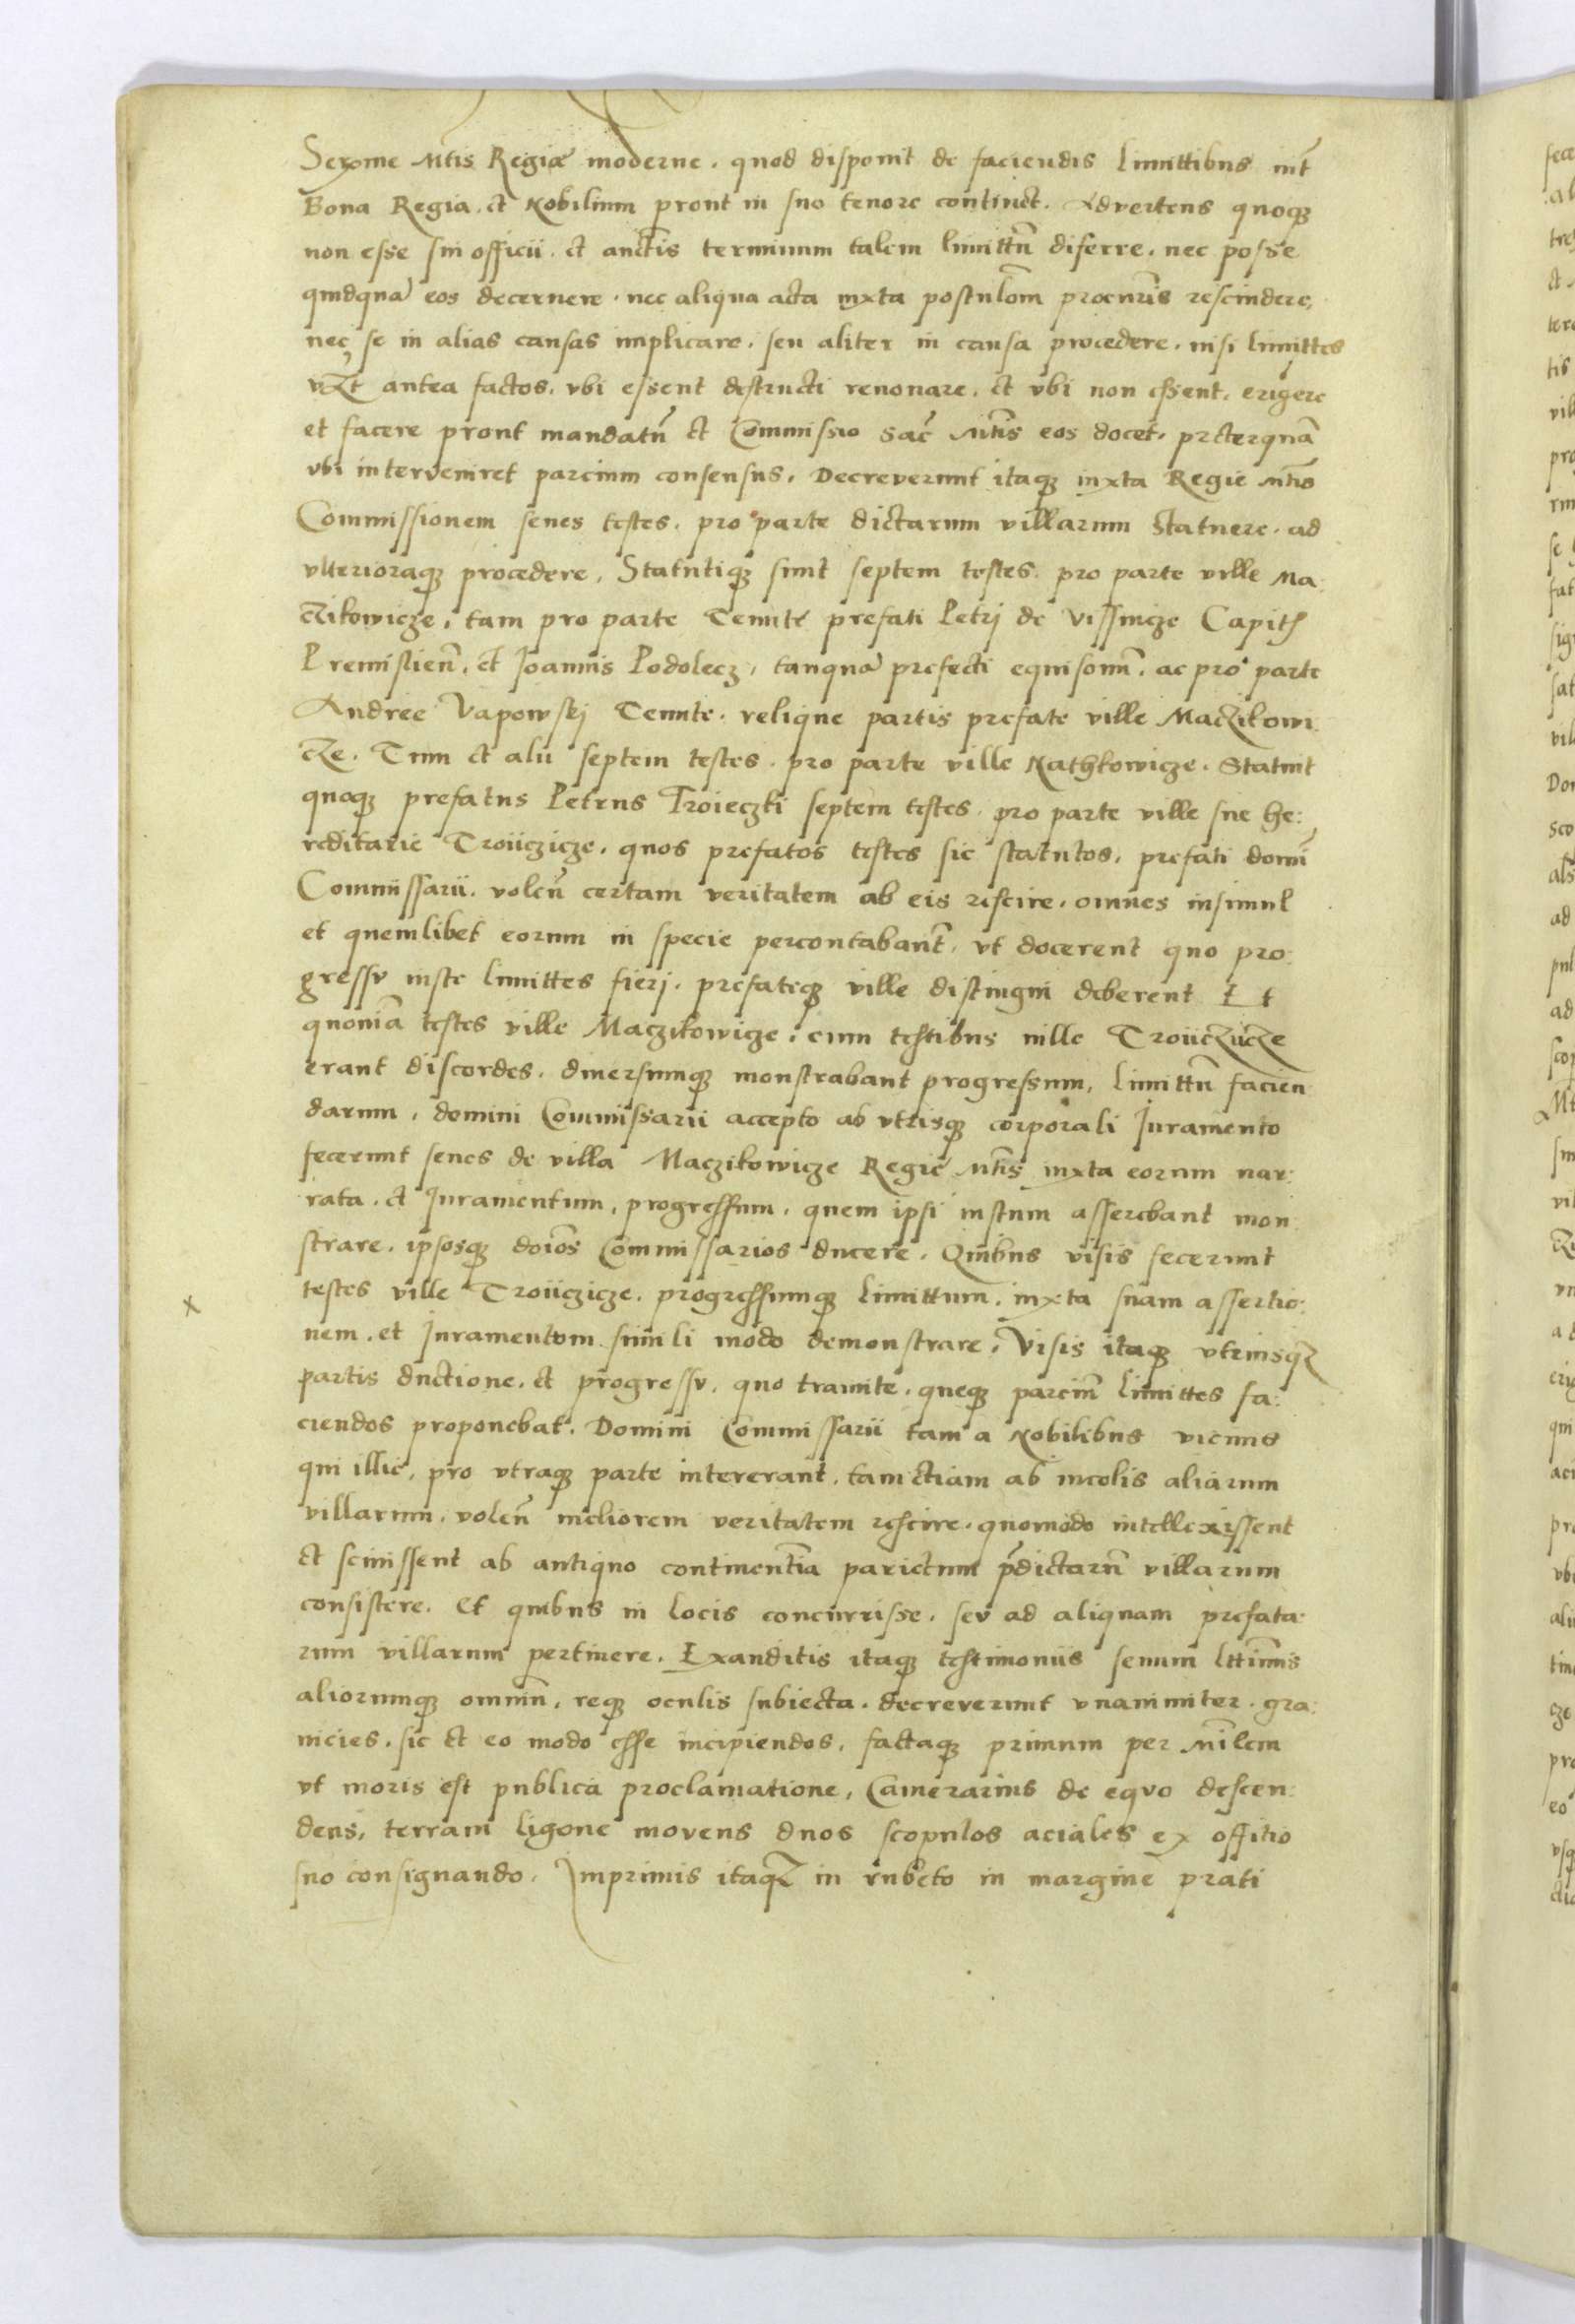 Serme Mtis Regiae moderne. quod disponit de faciendis limittibus int
Bona Regia. et Nobilium prout in suo tenore continet. Advertens quoq
non esse sui officii. et auctis terminum talem limittu diferre. nec posse
quidqua eos decernere. nec aliqua acta iuxta postulom procuris rescindere,
nec se in alias causas implicare. seu aliter in causa procedere. nisi limittes
vzt antea factos. vbi essent destructi renovare. et vbi non essent. erigere
et facere prout mandatu et Commissio Sac Mtis eos docet. preterqua
vbi interveniret parcium consensus. Decreverunt itaq iuxta Regie Mtis
Commissionem senes testes. pro parte dictarum villarum statuere. ad
vlterioraq procedere. Statutiq sunt septem testes. pro parte ville Ma:
czikowicze. tam pro parte Tenute prefati Petri de Vissnicze Capit
Premislien. et Joannis Podolecz. tanqua prefecti equisonum. ac pro parte
Andree Vapowskj Tenute. relique partis prefate ville Maczikowi:
cze. Tum et alii septem testes. pro parte ville Nathkowicze. Statuit
quoq prefatus Petrus Troieczki septem testes. pro parte ville sue he:
reditarie Troiiczicze. quos prefatos testes sic statutos. prefati domi
Commissarii. volen certam veritatem ab eis rescire. omnes insimul
et quemlibet eorum in specie percontabant. vt docerent quo pro:
gressv iuste limittes fierj. prefateq ville distingui deberent Et
quonia testes ville Maczikowicze. cum testibus ville Troiiczicze
erant discordes. diversumq monstrabant progressum, limittu facien
darum. domini Commissarii accepto ab vtrisq corporali Juramento
fecerunt senes de villa Maczikowicze Regie Mtis iuxta eorum nar:
rata. et Juramentum. progressum. quem ipsi iustum asserebant mon:
strare. ipsosq doios Commissarios ducere. Quibus visis fecerunt
x testes ville Troiiczicze. progressumq limittum. iuxta suam assertio:
nem. et Juramentom simili modo demonstrare. Visis itaq vtriusq
partis ductione. et progressv. quo tramite. queq parcium limittes fa:
ciendos proponebat. Domini Commissarii tam a Nobilibus vicinis
qui illic, pro vtraq parte intererant. tam etiam ab incolis aliarum
villarum. volen meliorem veritatem rescire. quomodo intellexissent
et scivissent ab antiquo continentia parietum pdictaru villarum
consistere. Et quibus in locis concurrisse. sev ad aliquam prefata:
rum villarum pertinere. Exauditis itaq testimoniis senum lttimis
aliorumq omniu. req oculis subiecta. decreverunt vnanimiter. gra:
nicies. sic et eo modo esse incipiendos. factaq primum per Milem
vt moris est publica proclamatione, Camerarius de equo descen:
dens, terram ligone movens duos scopulos aciales ex offitio
suo consignando. Imprimis itaq in rubeto in margine prati